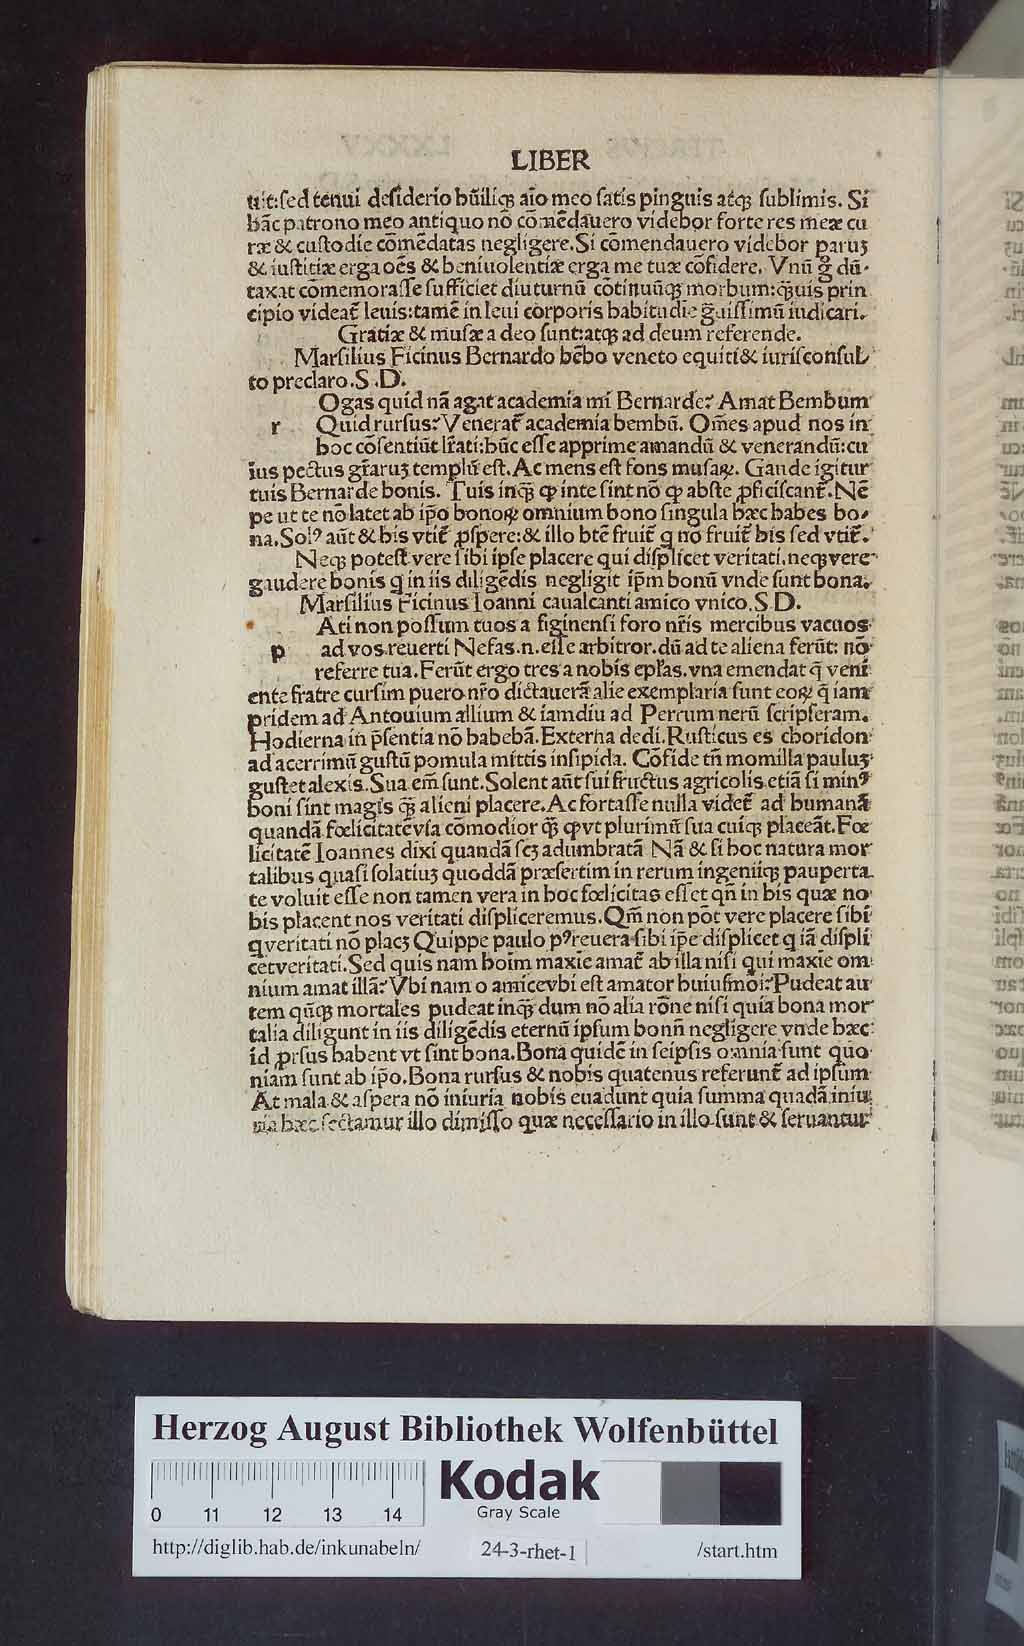 LIBER
uit:sed tenui desiderio hũiliqꝫ aĩo meo satis pinguis atqꝫ sublimis. Si
hãc patrono meo antiquo nõ cõmẽdauero videbor forte res meæ cu
ræ & custodie cõmẽdatas negligere. Si cõmendauero videbor paruꝫ
& iustitiæ erga oẽs & beniuolentiæ erga me tuæ cõfidere. Vnũ g̃ dũ-
taxat cõmemorasse sufficiet diuturnũ cõtinuũqꝫ morbum:q̃uis prin
cipio videat̃ leuis:tamẽ in leui corporis habitudĩe g̃uissimũ iudicari.
Gratiæ & musæ a deo sunt:atqꝫ ad deum referende.
Marsilius Ficinus Bernardo bẽbo veneto equiti & iurisconsul
to preclaro. S .D.
Ogas quid nã agat academia mi Bernarde? Amat Bembum
r Quid rursus? Venerat̃ academia bembũ. Om̃es apud nos in
hoc cõsentiũt lr̃ati:hũc esse apprime amandũ & venerandũ:cu
ius pectus gr̃aruꝫ templũ est. Ac mens est fons musaꝝ. Gaude igitur
tuis Bernarde bonis. Tuis inq̃ ꝙ in te sint nõ ꝙ abs te ꝓficiscant̃. Nẽ
pe ut te nõ latet ab ip̃o bonoꝝ omnium bono singula hæc habes bo-
na. Solꝰ aũt & his vtit̃ ꝓspere:& illo btẽ fruit̃ q nõ fruit̃ his sed vtit̃.
Neqꝫ potest vere sibi ipse placere qui displicet veritati. neqꝫ vere
gaudere bonis q in iis diligẽdis negligit ip̃m bonũ vnde sunt bona.
Marsilius Ficinus Ioanni caualcanti amico vnico. S D.
Ati non possum tuos a figinensi foro nr̃is mercibus vacuos
p ad vos reuerti Nefas .n. esse arbitror. dũ ad te aliena ferũt: nõ
referre tua. Ferũt ergo tres a nobis epl̃as. vna emendat q̃ veni
ente fratre cursim puero nr̃o dictauerã alie exemplaria sunt eoꝝ q̃ iam
pridem ad Antouium allium & iamdiu ad Petrum nerũ scripseram.
Hodierna in p̃sentia nõ habebã. Externa dedi. Rusticus es choridon
ad acerrimũ gustũ pomula mittis insipida. Cõfide tñ momilla pauluꝫ
gustet alexis. Sua em̃ sunt. Solent aũt sui fructus agricolis etiã si minꝰ
boni sint magis q̃ alieni placere. Ac fortasse nulla videt̃ ad humanã
quandã fœlicitatẽ via cõmodior q̃ ꝙ vt plurimũ sua cuiqꝫ placeãt. Fœ
licitatẽ Ioannes dixi quandã scꝫ adumbratã Nã & si hoc natura mor
talibus quasi solatiuꝫ quoddã præsertim in rerum ingeniiqꝫ pauperta
te voluit esse non tamen vera in hoc fœlicitas esset qñ in his quæ no
bis placent nos veritati displiceremus. Qm̃ non põt vere placere sibi
q veritati nõ placꝫ Quippe paulo pꝰ reuera sibi ip̃e displicet q iã displi
cet veritati. Sed quis nam hoĩm maxie amat̃ ab illa nisi qui maxie om
nium amat illã? Vbi nam o amice vbi est amator huiusmõi? Pudeat au
tem qũqꝫ mortales pudeat inq̃ dum nõ alia rõne nisi quia bona mor
talia diligunt in iis diligẽdis eternũ ipsum bonũ negligere vnde hæc
id ꝓrsus habent vt sint bona. Bona quidẽ in seipsis omnia sunt quo
niam sunt ab ip̃o. Bona rursus & nobis quatenus referunt̃ ad ipsum
At mala & aspera nõ iniuria nobis euadunt quia summa quadã iniu
ria hæc sectamur illo dimisso quæ necessario in illo sunt & seruantur
Herzog August Bibliothek Wolfenbüttel
0 11 12 13 14
Kodak
Gray Scale
http://diglib.hab.de/inkunabeln/ 24-3-rhet-1 /start.htm